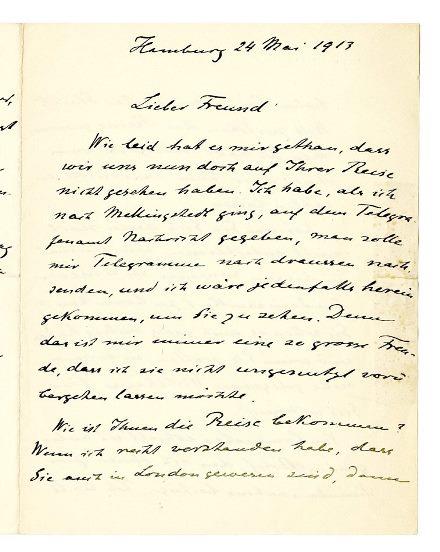 Hamburg 24 Mai 1913
Lieber Freund
Wie leid hat es mir gethan, dass
wir uns nun doch auf Ihrer Reise
nicht gesehen haben. Ich habe, als ich
nach Mellingstedt ging, auf dem Telegra
fenamt Nachricht gegeben, man solle
mir Telegramme nach draussen nach
senden, und ich wäre jedenfalls herein
gekommen, um Sie zu sehen. Denn
das ist mir immer eine so grosse Freu-
de, dass ich sie nicht ungenutzt vorü
bergehen lassen möchte.
Wie ist Ihnen die Reise bekommen?
Wenn ich recht verstanden habe, dass
Sie auch in London gewesen sind, dann